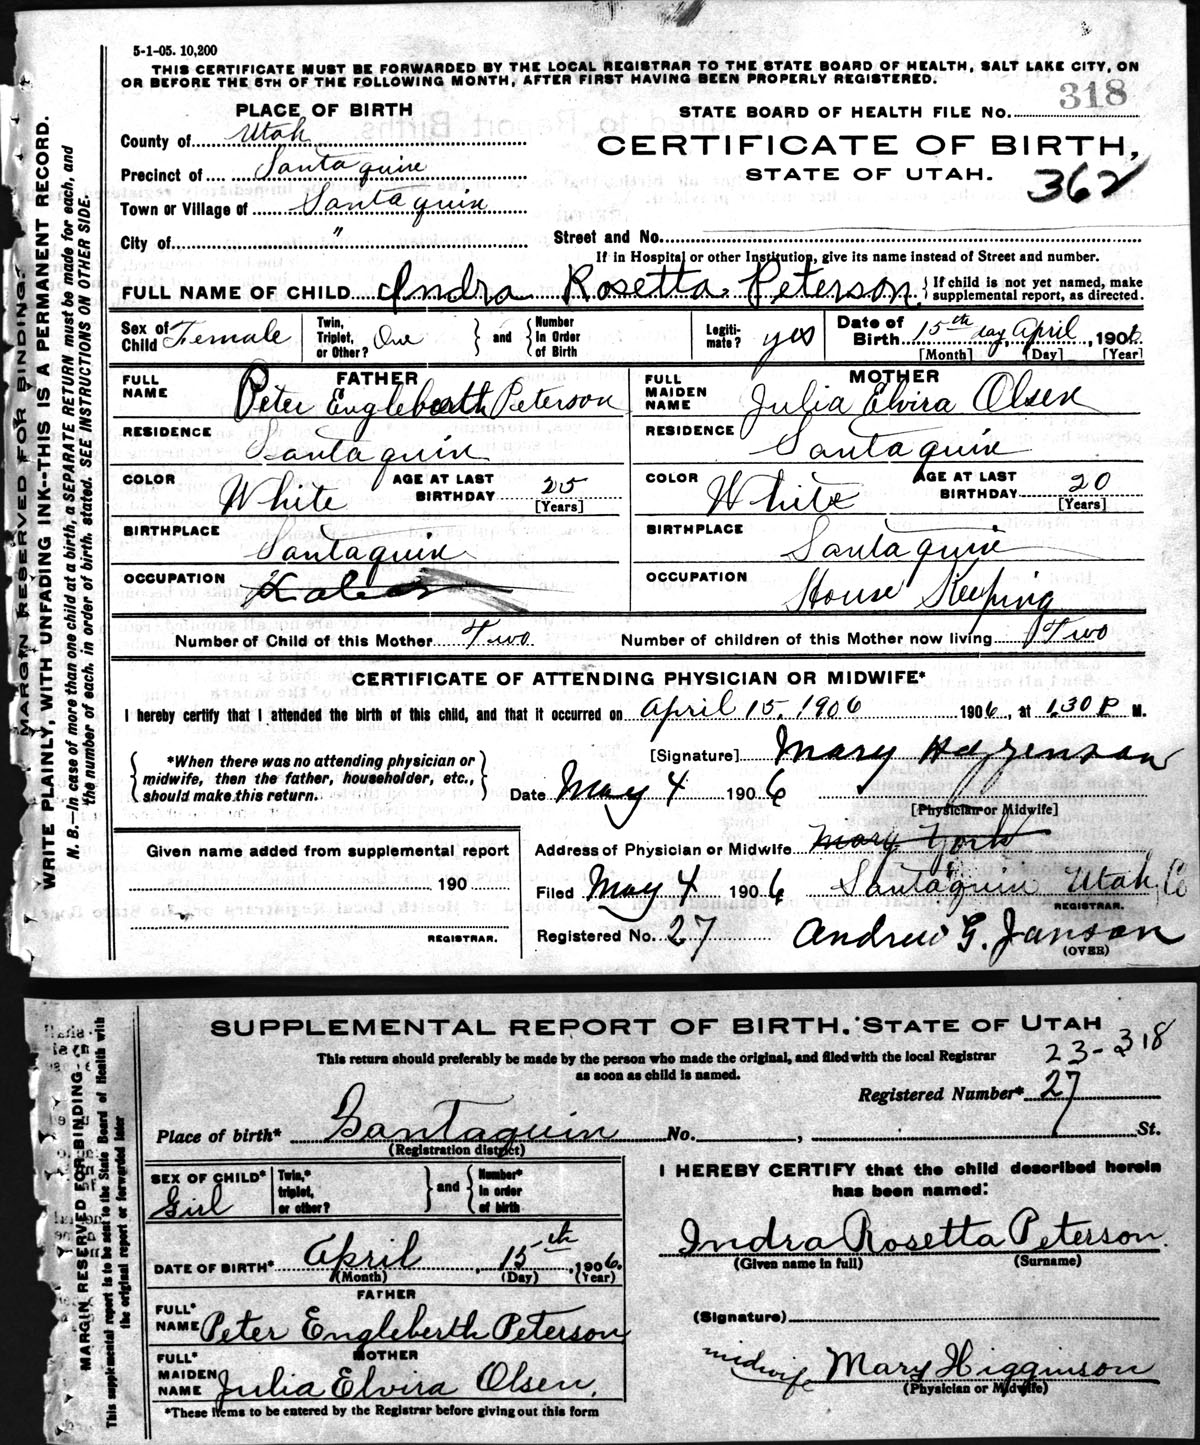 5-1-05. 10,200
THIS CERTIFICATE MUST BE FORWARDED BY THE LOCAL REGISTRAR TO THE STATE BOARD OF HEALTH, SALT LAKE CITY, ON
OR BEFORE THE 5TH OF THE FOLLOWING MONTH, AFTER FIRST HAVING BEEN PROPERLY REGISTERED.
MARGIN RESERVED FOR BINDING.
WRITE PLAINLY, WITH UNFADING INK--THIS IS A PERMANENT RECORD.
N. B.—In case of more than one child at a birth, a SEPARATE RETURN must be made for each, and
the number of each, in order of birth, stated. SEE INSTRUCTIONS ON OTHER SIDE.
PLACE OF BIRTH
County of Utah
Precinct of Santaquin
Town or Village of Santaquin
City of "
STATE BOARD OF HEALTH FILE No. 318
CERTIFICATE OF BIRTH,
STATE OF UTAH.
362
Street and No.
If in Hospital or other Institution, give its name instead of Street and number.
FULL NAME OF CHILD Indra Rosetta Peterson { If child is not yet named, make
supplemental report, as directed.
Sex of Child Female
Twin, Triplet, or Other? One } and { Number In Order of Birth
Legiti-mate? yes
Date of Birth 15th day April, 1906
[Month] [Day] [Year]
FATHER
FULL NAME Peter Engleberth Peterson
RESIDENCE Santaquin
COLOR White AGE AT LAST BIRTHDAY 25
[Years]
BIRTHPLACE Santaquin
OCCUPATION Labor
MOTHER
FULL MAIDEN NAME Julia Elvira Olsen
RESIDENCE Santaquin
COLOR White AGE AT LAST BIRTHDAY 20
[Years]
BIRTHPLACE Santaquin
OCCUPATION House Keeping
Number of Child of this Mother Two Number of children of this Mother now living Two
CERTIFICATE OF ATTENDING PHYSICIAN OR MIDWIFE*
I hereby certify that I attended the birth of this child, and that it occurred on April 15, 1906 1906, at 1,30 P M.
{ *When there was no attending physician or
midwife, then the father, householder, etc.,
should make this return. }
[Signature] Mary
Date May 4 1906
[Physician or Midwife]
Given name added from supplemental report
190
REGISTRAR.
Address of Physician or Midwife Mary York
Filed May 4 1906 Santaquin Utah Co
REGISTRAR.
Registered No. 27 Andrew G. Janson
(OVER)
SUPPLEMENTAL REPORT OF BIRTH. STATE OF UTAH
This return should preferably be made by the person who made the original, and filed with the local Registrar
as soon as child is named.
23-318
Registered Number* 27
MARGIN RESERVED FOR BINDING.
This supplemental report is to be sent to the State Board of Health with
the original report or forwarded later
Place of birth* Santaquin No. , St.
(Registration district)
SEX OF CHILD* Girl
Twin,* triplet, or other? } and { Number* in order of birth
DATE OF BIRTH* April, 15th, 1906.
(Month) (Day) (Year)
FATHER
FULL* NAME Peter Engleberth Peterson
MOTHER
FULL* MAIDEN NAME Julia Elvira Olsen.
*These items to be entered by the Registrar before giving out this form
I HEREBY CERTIFY that the child described herein
has been named:
Indra Rosetta Peterson.
(Given name in full) (Surname)
(Signature)
midwife Mary Higginson
(Physician or Midwife)